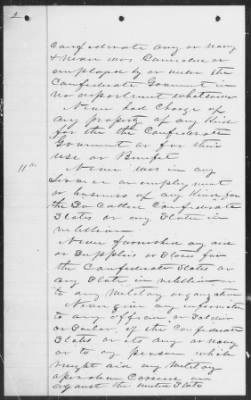 Confederate army or navy
& never was Connected or
employed by or under the
Confederate Government in
no department whatever
Never had Charge of
any property of any Kind
for the the Confederate
Government or for their
use or Benefit
11th Never was in any
Service or employment
or business of any Kind for
the So Called Confederate
States or any State in
rebellion
Never furnished any aid
or Supplies or Stores for
the Confederate States or
any State in rebellion
to any military organization
Never give any information
to any officer or Soldier
or Sailor of the Confederate
States or its army or navy
or to any person which
might aid any military
operations Carried on
against the United States